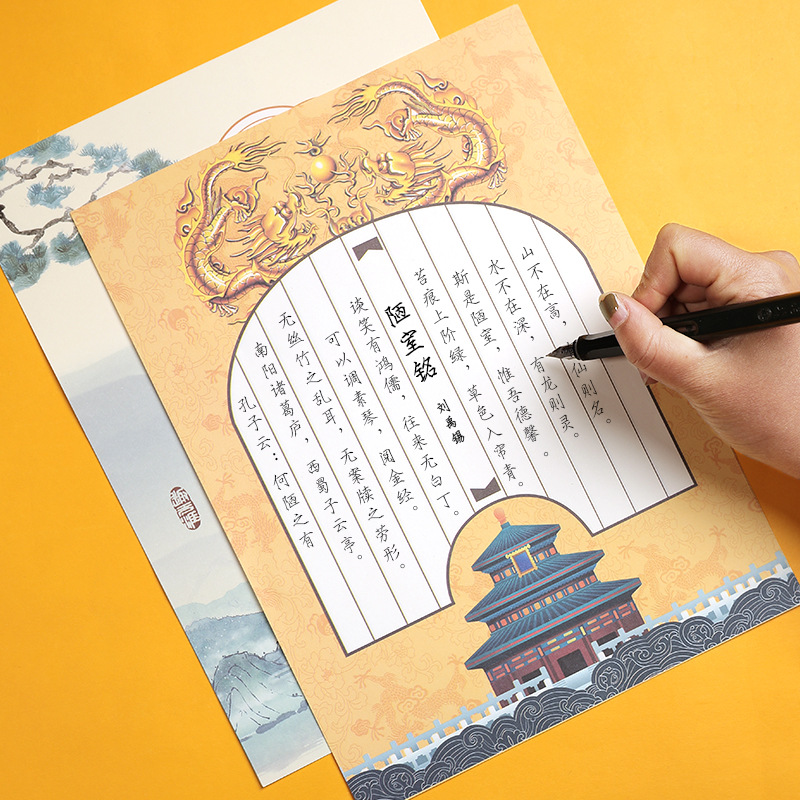 山不在高，仙则名。
水不在深，有龙则灵。
斯是陋室，惟吾德馨。
苔痕上阶绿，草色入帘青。
陋室铭
刘禹锡
谈笑有鸿儒，往来无白丁。
可以调素琴，阅金经。
无丝竹之乱耳，无案牍之劳形。
南阳诸葛庐，西蜀子云亭。
孔子云：何陋之有